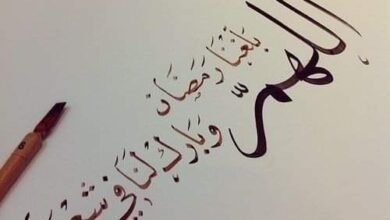 اللهمّ
بَلِّغْنَا رَمَضَان
وَبَارِك لَنَا فِي